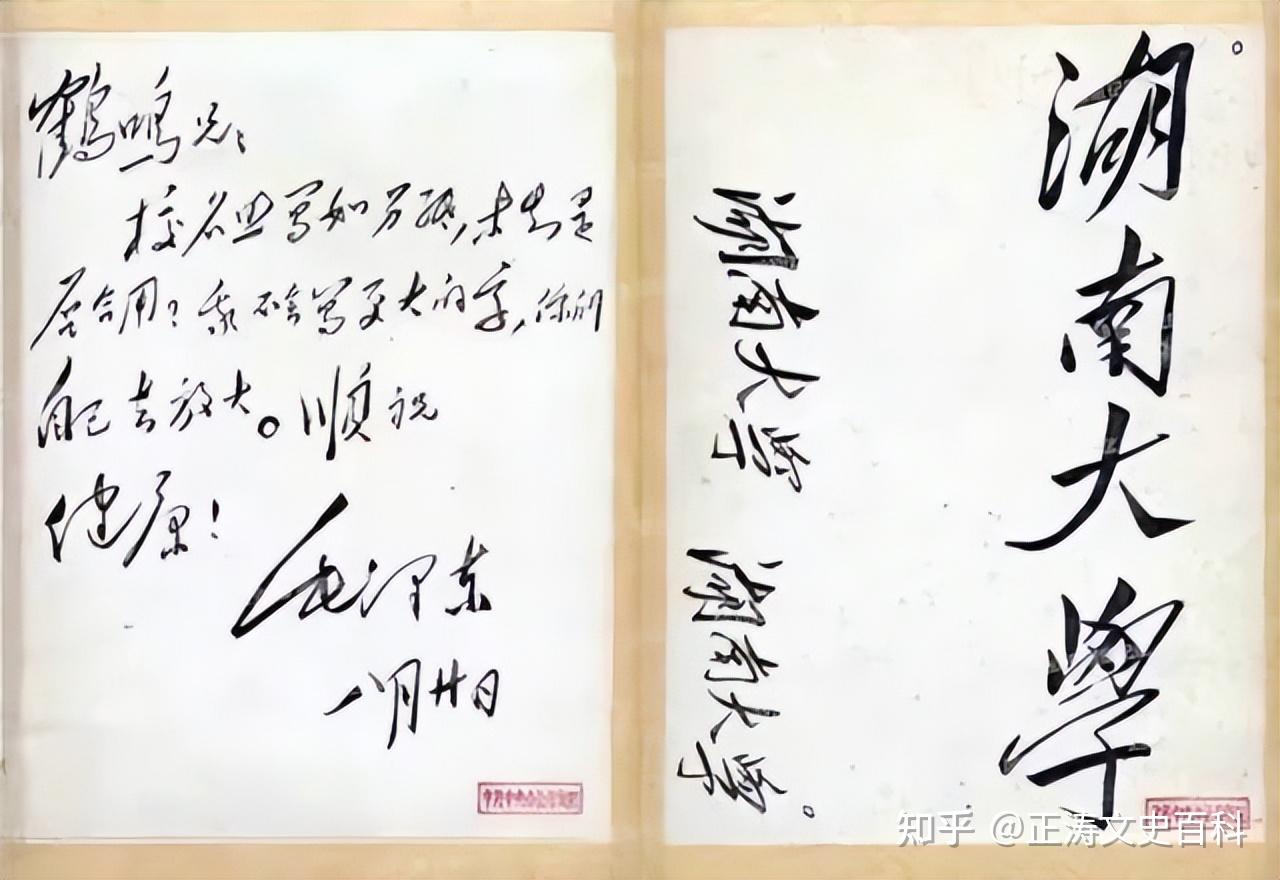 鹤鸣兄：
校名写如另纸，未知是
否合用？我不会写更大的字，你们
自己去放大。顺祝
健康！
毛泽东
八月廿日
湖南大學
湖南大學
湖南大學
知乎 @正涛文史百科